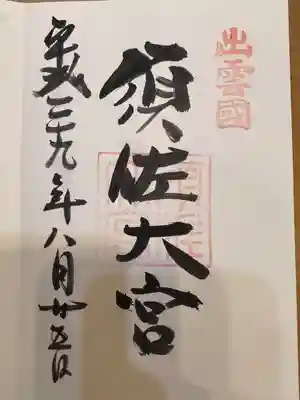 出雲國
須佐大宮
平成二十九年八月廿五日